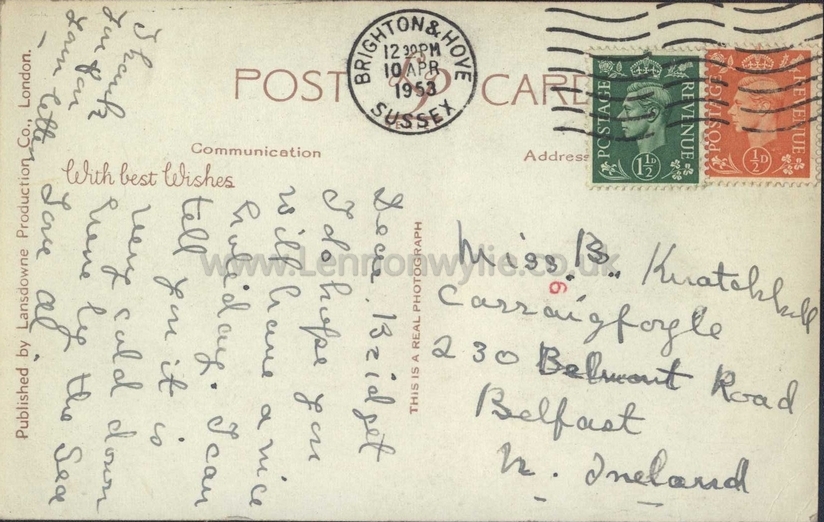 POST CARD
BRIGHTON & HOVE
12 30 PM
10 APR
1953
SUSSEX
POSTAGE REVENUE
1½D
POSTAGE REVENUE
½D
Communication
Address
With best Wishes
Published by Lansdowne Production Co., London.
THIS IS A REAL PHOTOGRAPH
www.Lennonwylie.co.uk
Dear Bridget
I do hope you
will have a nice
holiday. I can
tell you it is
very cold down
here by the Sea
Love
Thank
you for
letter
Miss. B.
9
Carraigfoyle
230 Belmont Road
Belfast
N. Ireland